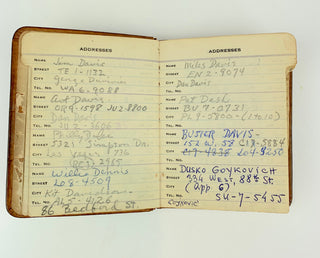 ADDRESSES
NAME Jim Davis
STREET TE-1-1132
CITY George Duvivier
TEL. NO. WA 6-9088
NAME Art Davis
STREET OR 9-1598 JU2-8800
CITY Dan Davis
TEL. NO. JU 2-
NAME Phil
STREET 5321 Simpson Dr.
CITY Las Vegas 736
TEL. NO. 2965
NAME Willie Dennis
STREET LO 8-4509
CITY Kit Davidson
TEL. NO. AL 5-4126
86 Bedford St.
ADDRESSES
NAME Miles Davis
STREET EN 2-9074
CITY Dan Davis
TEL. NO.
NAME Pat Dash
STREET BU 7-0731
CITY PL 9-5800-(L to 10)
TEL. NO.
NAME BUSTER DAVIS-
STREET 152 W. 58 CI 8-5884
CITY LO 4-9250
TEL. NO.
NAME DUSKO GOYKOVICH
STREET 334 WEST 88th St.
CITY (app 6)
TEL. NO. SU-7-5455
Goykovic